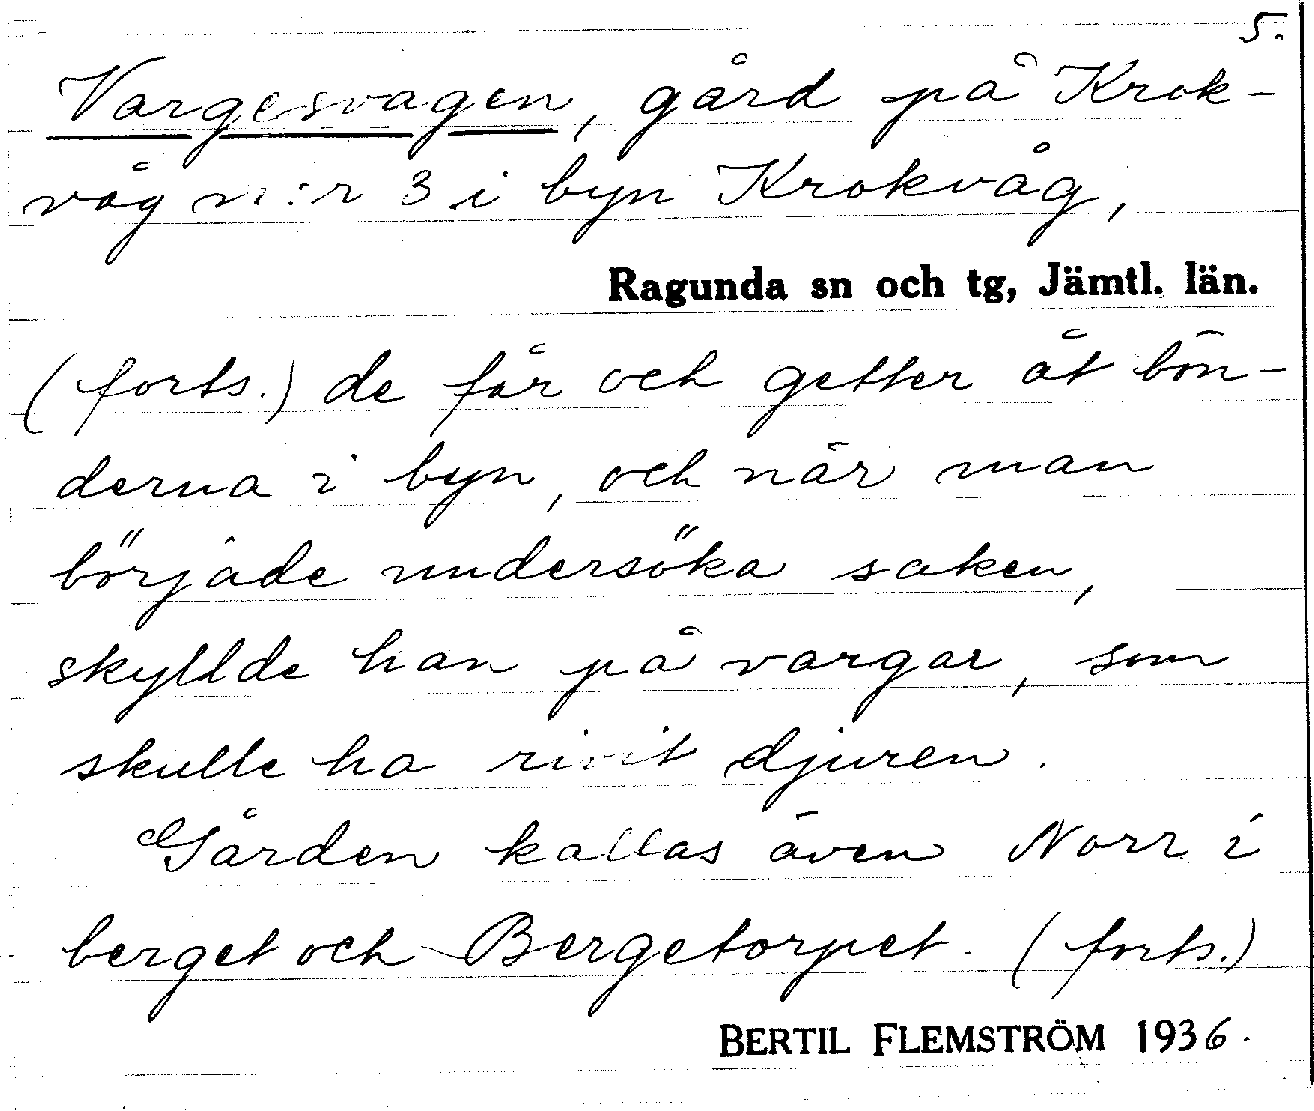 5.
Vargesvagen, gård på Krok-
våg n:r 3 i byn Krokvåg,
Ragunda sn och tg, Jämtl. län.
(forts.) de får och getter åt bön-
derna i byn, och när man
började undersöka saken,
skyllde han på vargar, som
skulle ha rivit djuren.
Gården kallas även Norr i
berget och Bergetorpet. (forts.)
BERTIL FLEMSTRÖM 1936.